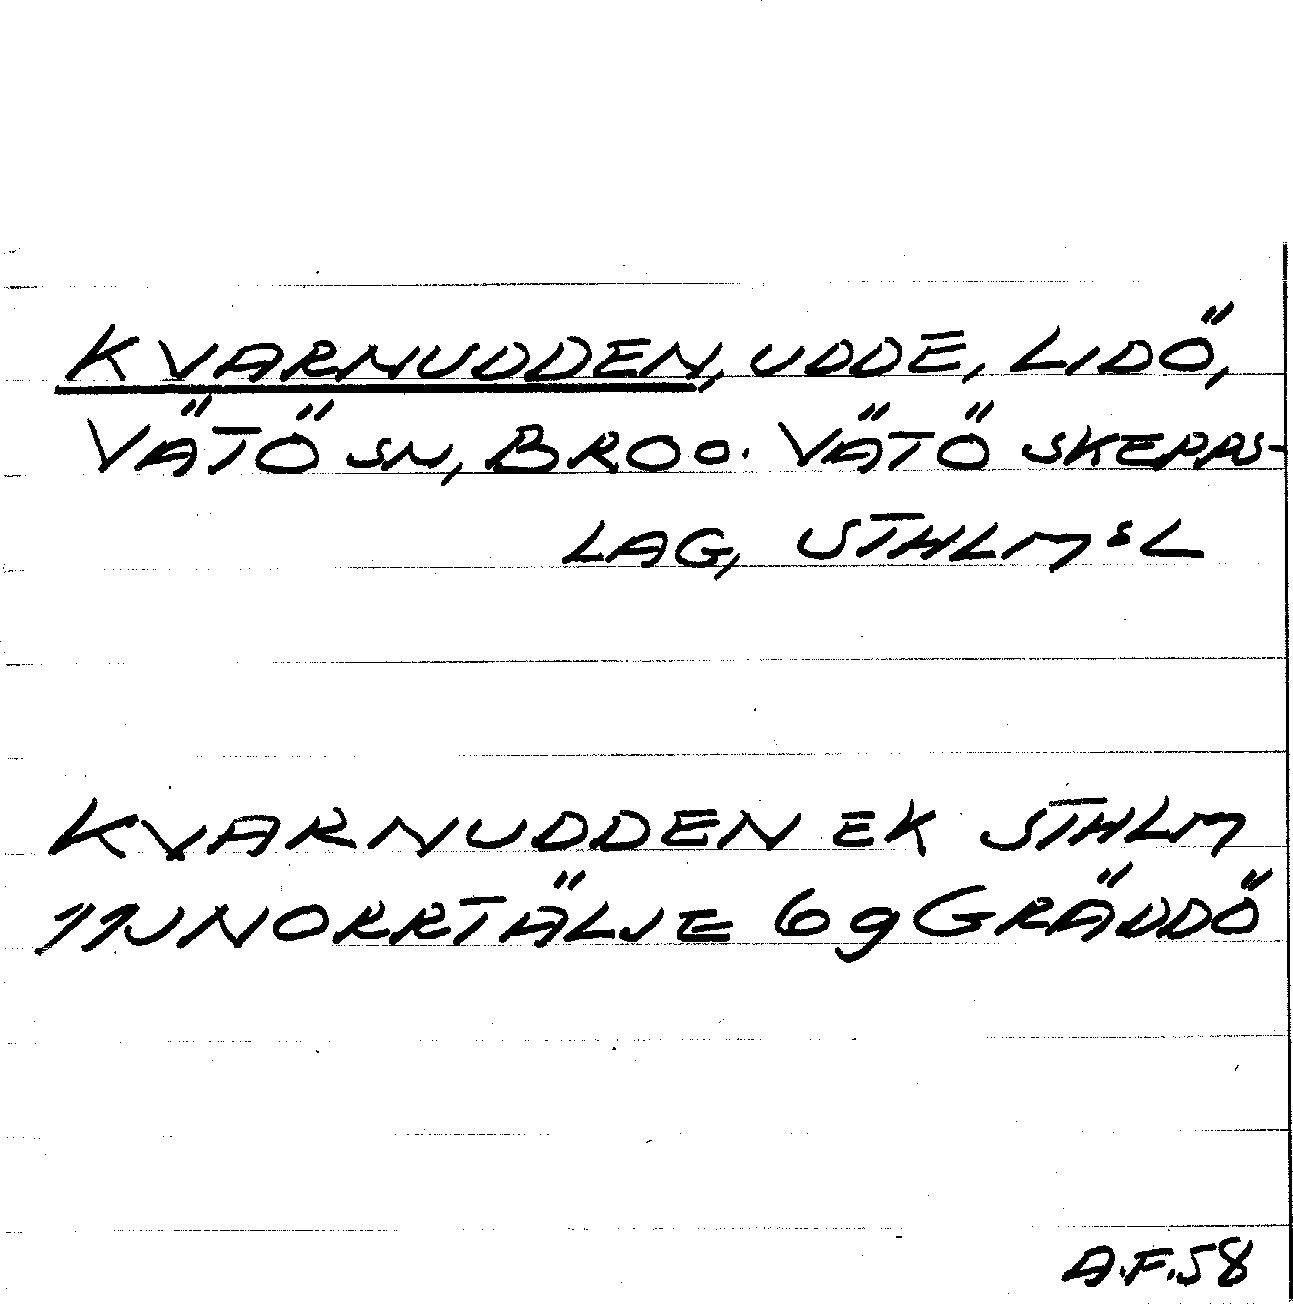 KVARNUDDEN, UDDE, LIDÖ,
VÄTÖ SN, BRO O. VÄTÖ SKEPPS-
LAG, STHLMS L
KVARNUDDEN EK STHLM
11J NORRTÄLJE 6g GRÄDDÖ
A.F.58